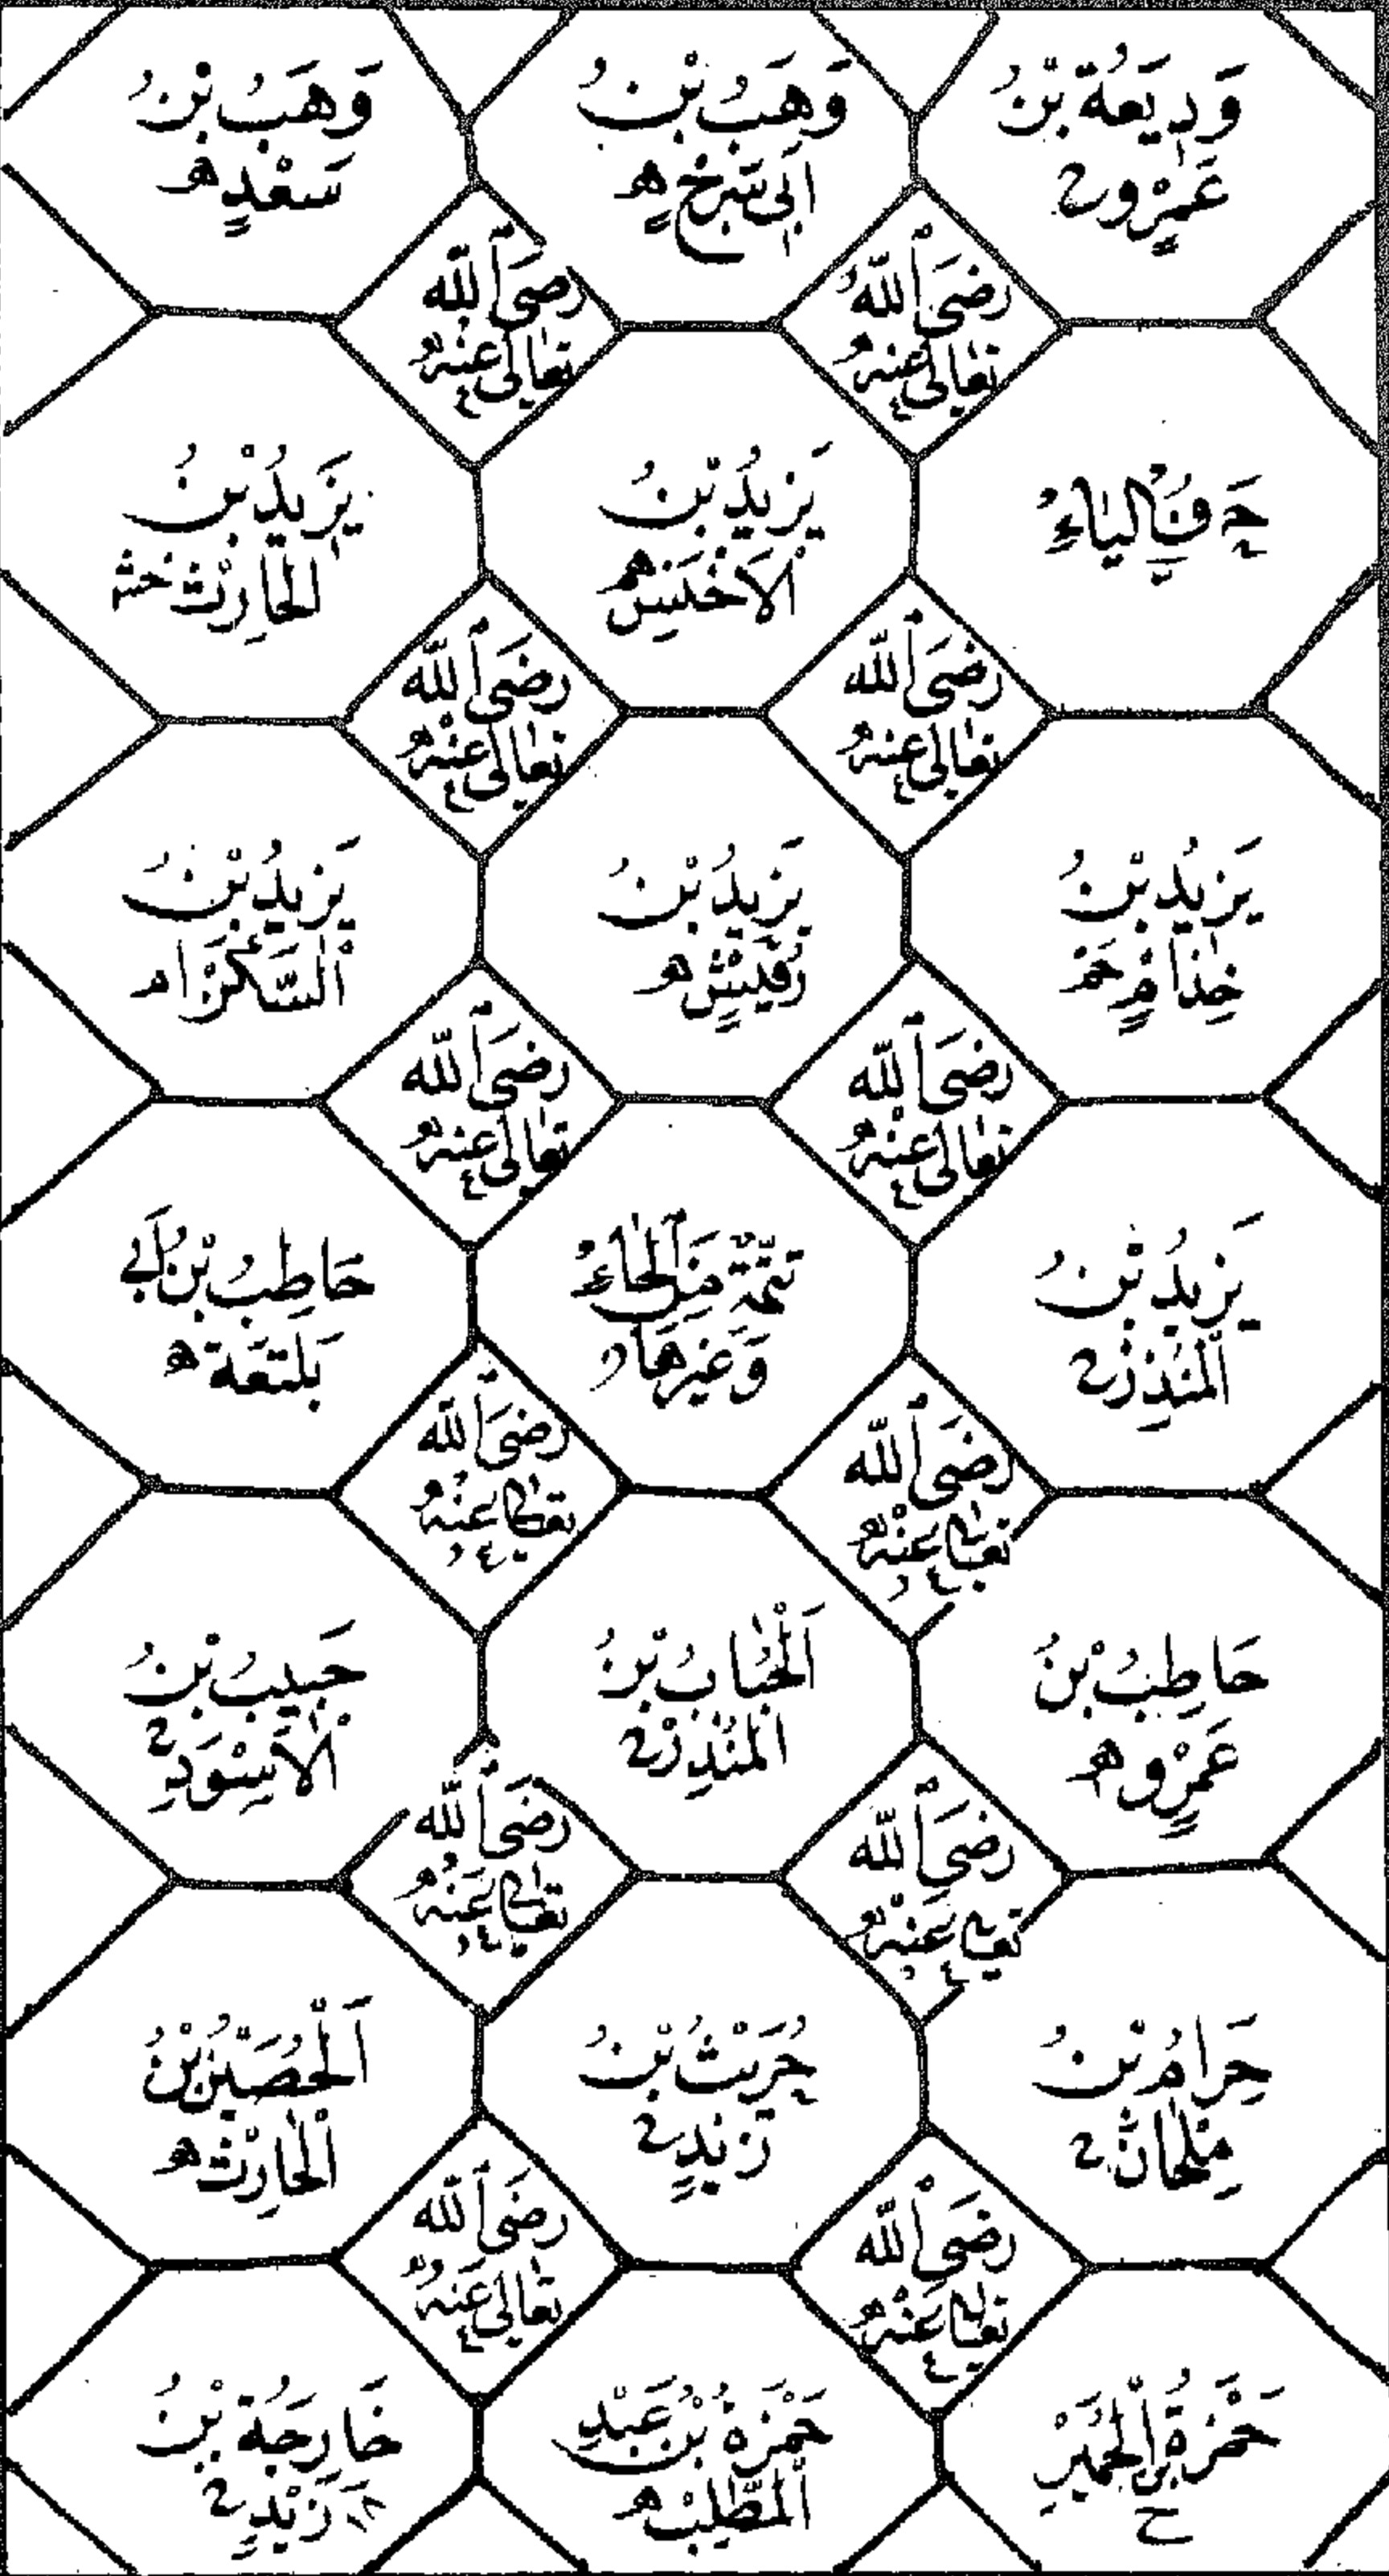 وَدِيعَةُ بْنُ
عَمْرٍو
وَهَبُ بْنُ
اَبِي سَرْحٍ ه
وَهَبُ بْنُ
سَعْدٍ ه
رَضِىَ اللّٰه
تَعَالٰى عَنْهُ
رَضِىَ اللّٰه
تَعَالٰى عَنْهُ
يَزِيدُ بْنُ
الْاَخْنَسِ ه
يَزِيدُ بْنُ
الْحَارِثِ
رَضِىَ اللّٰه
تَعَالٰى عَنْهُ
رَضِىَ اللّٰه
تَعَالٰى عَنْهُ
يَزِيدُ بْنُ
خِذَامٍ
يَزِيدُ بْنُ
رُقَيْشٍ ه
يَزِيدُ بْنُ
السَّكَنْ
رَضِىَ اللّٰه
تَعَالٰى عَنْهُ
رَضِىَ اللّٰه
تَعَالٰى عَنْهُ
يَزِيدُ بْنُ
الْمُنْذِرْ
تَتِمَّةٌ مِنَ الْحَاءِ
وَغَيْرِهَا
حَاطِبُ بْنُ اَبِي
بَلْتَعَةَ ه
رَضِىَ اللّٰه
تَعَالٰى عَنْهُ
رَضِىَ اللّٰه
تَعَالٰى عَنْهُ
حَاطِبُ بْنُ
عَمْرٍو ه
اَلْحُبَابُ بْنُ
الْمُنْذِرْ
حَبِيبُ بْنُ
الْاَسْوَدِ
رَضِىَ اللّٰه
تَعَالٰى عَنْهُ
رَضِىَ اللّٰه
تَعَالٰى عَنْهُ
حَرَامُ بْنُ
مِلْحَانَ
حُرَيْثُ بْنُ
زَيْدٍ
اَلْحُصَيْنُ بْنُ
الْحَارِثْ ه
رَضِىَ اللّٰه
تَعَالٰى عَنْهُ
رَضِىَ اللّٰه
تَعَالٰى عَنْهُ
حَمْزَةُ بْنُ الْحُمَيِّرِ
ح
حَمْزَةُ بْنُ عَبْدِ
الْمُطَّلِبْ ه
خَارِجَةُ بْنُ
زَيْدٍ